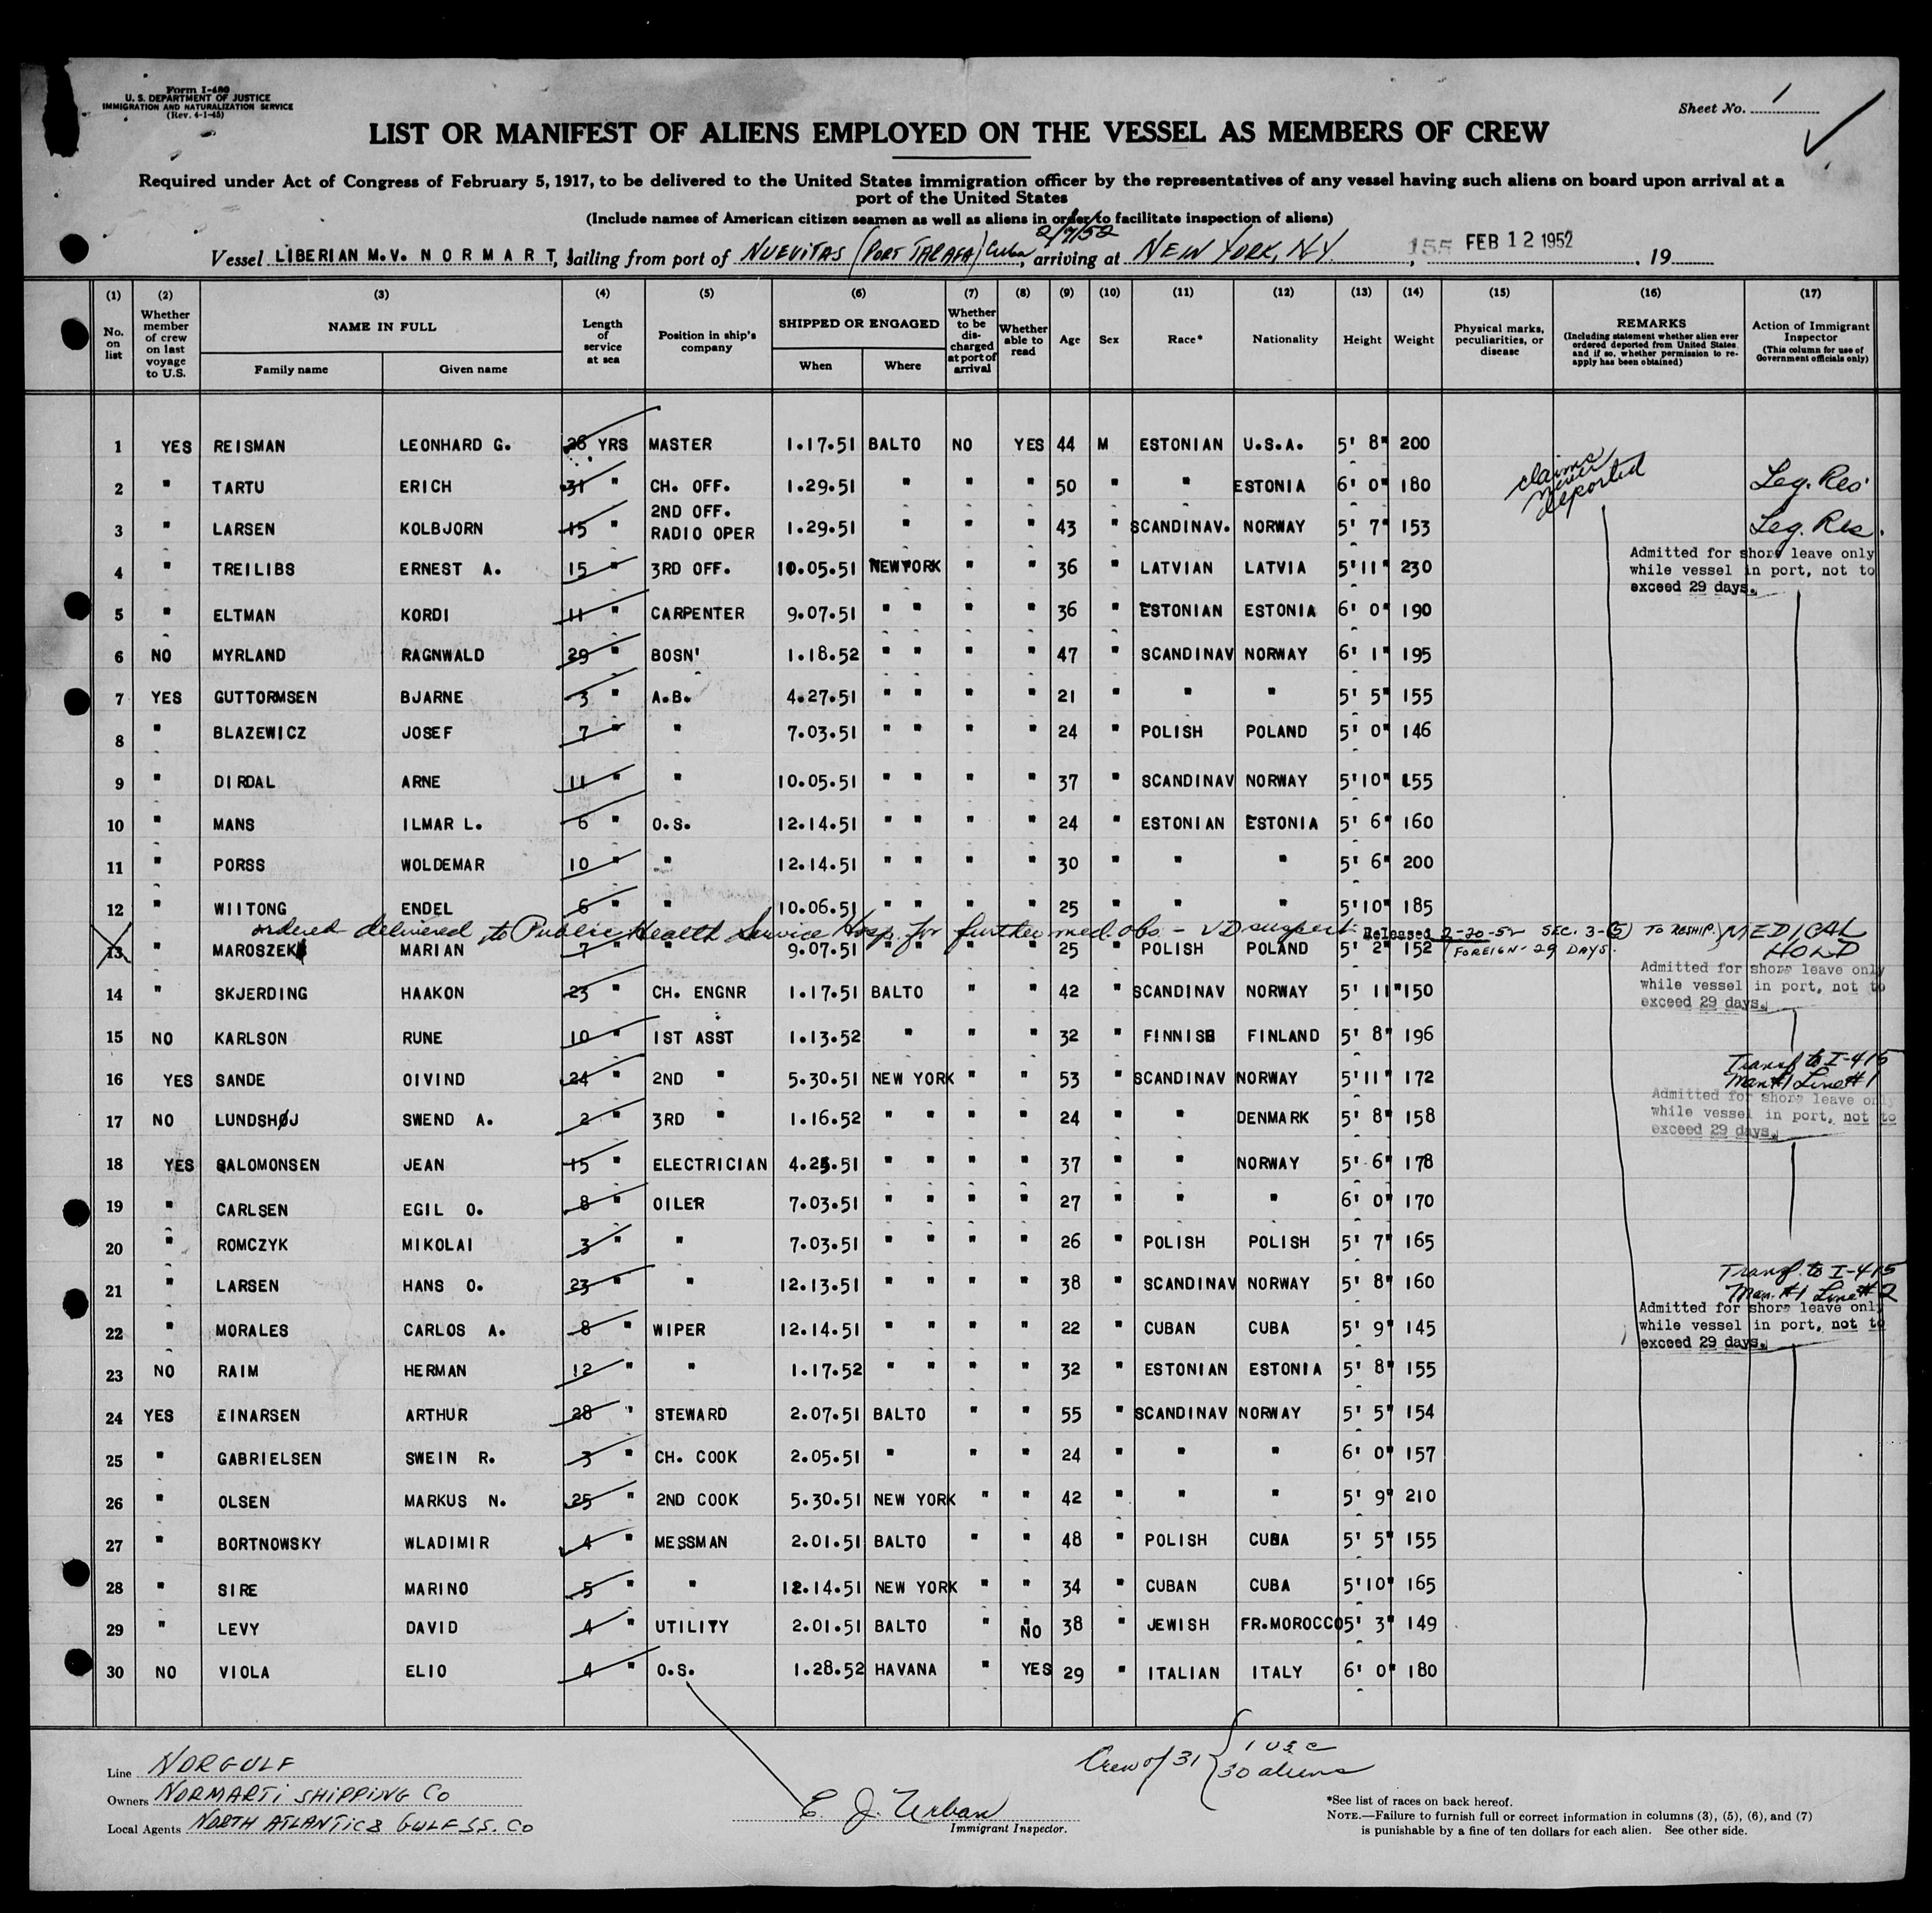 Form I-480
U. S. DEPARTMENT OF JUSTICE
IMMIGRATION AND NATURALIZATION SERVICE
(Rev. 4-1-45)
Sheet No. 1
LIST OR MANIFEST OF ALIENS EMPLOYED ON THE VESSEL AS MEMBERS OF CREW
Required under Act of Congress of February 5, 1917, to be delivered to the United States immigration officer by the representatives of any vessel having such aliens on board upon arrival at a
port of the United States
(Include names of American citizen seamen as well as aliens in order to facilitate inspection of aliens)
2/7/52
Vessel LIBERIAN M.V. N O R M A R T I, sailing from port of NUEVITAS (PORT TARAFA) Cuba, arriving at NEW YORK, N.Y., 155 FEB 12 1952, 19
(1) (2) (3) (4) (5) (6) (7) (8) (9) (10) (11) (12) (13) (14) (15) (16) (17)
No. on list Whether member of crew on last voyage to U.S. NAME IN FULL Family name Given name Length of service at sea Position in ship's company SHIPPED OR ENGAGED When Where Whether to be discharged at port of arrival Whether able to read Age Sex Race* Nationality Height Weight Physical marks, peculiarities, or disease REMARKS (Including statement whether alien ever ordered deported from United States, and if so, whether permission to reapply has been obtained) Action of Immigrant Inspector (This column for use of Government officials only)
1 YES REISMAN LEONHARD G. 26 YRS MASTER 1.17.51 BALTO NO YES 44 M ESTONIAN U.S.A. 5' 8" 200
claims never deported
2 " TARTU ERICH 31 " CH. OFF. 1.29.51 " " " 50 " " ESTONIA 6' 0" 180 Leg. Res.
3 " LARSEN KOLBJORN 15 " 2ND OFF. RADIO OPER 1.29.51 " " " 43 " SCANDINAV. NORWAY 5' 7" 153 Leg. Res.
Admitted for shore leave only
while vessel in port, not to
exceed 29 days.
4 " TREILIBS ERNEST A. 15 " 3RD OFF. 10.05.51 NEWYORK " " 36 " LATVIAN LATVIA 5'11" 230
5 " ELTMAN KORDI 11 " CARPENTER 9.07.51 " " " " 36 " ESTONIAN ESTONIA 6' 0" 190
6 NO MYRLAND RAGNWALD 29 " BOSN' 1.18.52 " " " " 47 " SCANDINAV NORWAY 6' 1" 195
7 YES GUTTORMSEN BJARNE 3 " A.B. 4.27.51 " " " " 21 " " " 5' 5" 155
8 " BLAZEWICZ JOSEF 7 " " 7.03.51 " " " " 24 " POLISH POLAND 5' 0" 146
9 " DIRDAL ARNE 11 " " 10.05.51 " " " " 37 " SCANDINAV NORWAY 5'10" 155
10 " MANS ILMAR L. 6 " O.S. 12.14.51 " " " " 24 " ESTONIAN ESTONIA 5' 6" 160
11 " PORSS WOLDEMAR 10 " " 12.14.51 " " " " 30 " " " 5' 6" 200
12 " WIITONG ENDEL 6 " " 10.06.51 " " " " 25 " " " 5'10" 185
ordered delivered to Public Health Service Hosp. for further med. obs. - VD suspect. Released 2-20-52 SEC. 3-(5) TO RESHIP. MEDICAL HOLD
13 " MAROSZEK MARIAN 7 " " 9.07.51 " " " " 25 " POLISH POLAND 5' 2" 152 (FOREIGN - 29 DAYS.
Admitted for shore leave only
while vessel in port, not to
exceed 29 days.
14 " SKJERDING HAAKON 23 " CH. ENGNR 1.17.51 BALTO " " 42 " SCANDINAV NORWAY 5' 11" 150
15 NO KARLSON RUNE 10 " 1ST ASST 1.13.52 " " " 32 " FINNISH FINLAND 5' 8" 196
16 YES SANDE OIVIND 24 " 2ND " 5.30.51 NEW YORK " " 53 " SCANDINAV NORWAY 5'11" 172 Transf. to I-415 Man #1 Line #1
Admitted for shore leave only
while vessel in port, not to
exceed 29 days.
17 NO LUNDSHØJ SWEND A. 2 " 3RD " 1.16.52 " " " " 24 " " DENMARK 5' 8" 158
18 YES SALOMONSEN JEAN 15 " ELECTRICIAN 4.25.51 " " " " 37 " " NORWAY 5' 6" 178
19 " CARLSEN EGIL O. 8 " OILER 7.03.51 " " " " 27 " " " 6' 0" 170
20 " ROMCZYK MIKOLAI 3 " " 7.03.51 " " " " 26 " POLISH POLISH 5' 7" 165
21 " LARSEN HANS O. 23 " " 12.13.51 " " " " 38 " SCANDINAV NORWAY 5' 8" 160 Transf. to I-415 Man. #1 Line #2
Admitted for shore leave only
while vessel in port, not to
exceed 29 days.
22 " MORALES CARLOS A. 8 " WIPER 12.14.51 " " " " 22 " CUBAN CUBA 5' 9" 145
23 NO RAIM HERMAN 12 " " 1.17.52 " " " " 32 " ESTONIAN ESTONIA 5' 8" 155
24 YES EINARSEN ARTHUR 28 " STEWARD 2.07.51 BALTO " " 55 " SCANDINAV NORWAY 5' 5" 154
25 " GABRIELSEN SWEIN R. 3 " CH. COOK 2.05.51 " " " 24 " " " 6' 0" 157
26 " OLSEN MARKUS N. 25 " 2ND COOK 5.30.51 NEW YORK " " 42 " " " 5' 9" 210
27 " BORTNOWSKY WLADIMIR 4 " MESSMAN 2.01.51 BALTO " " 48 " POLISH CUBA 5' 5" 155
28 " SIRE MARINO 5 " " 12.14.51 NEW YORK " " 34 " CUBAN CUBA 5'10" 165
29 " LEVY DAVID 4 " UTILITY 2.01.51 BALTO " NO 38 " JEWISH FR.MOROCCO 5' 3" 149
30 NO VIOLA ELIO 4 " O.S. 1.28.52 HAVANA " YES 29 " ITALIAN ITALY 6' 0" 180
Line NORGULF
Crew of 31 { 1 USC
30 aliens
Owners NORMARTI SHIPPING CO
Local Agents NORTH ATLANTIC & GULF SS. CO
E. J. Urban
Immigrant Inspector.
*See list of races on back hereof.
NOTE.—Failure to furnish full or correct information in columns (3), (5), (6), and (7)
is punishable by a fine of ten dollars for each alien. See other side.